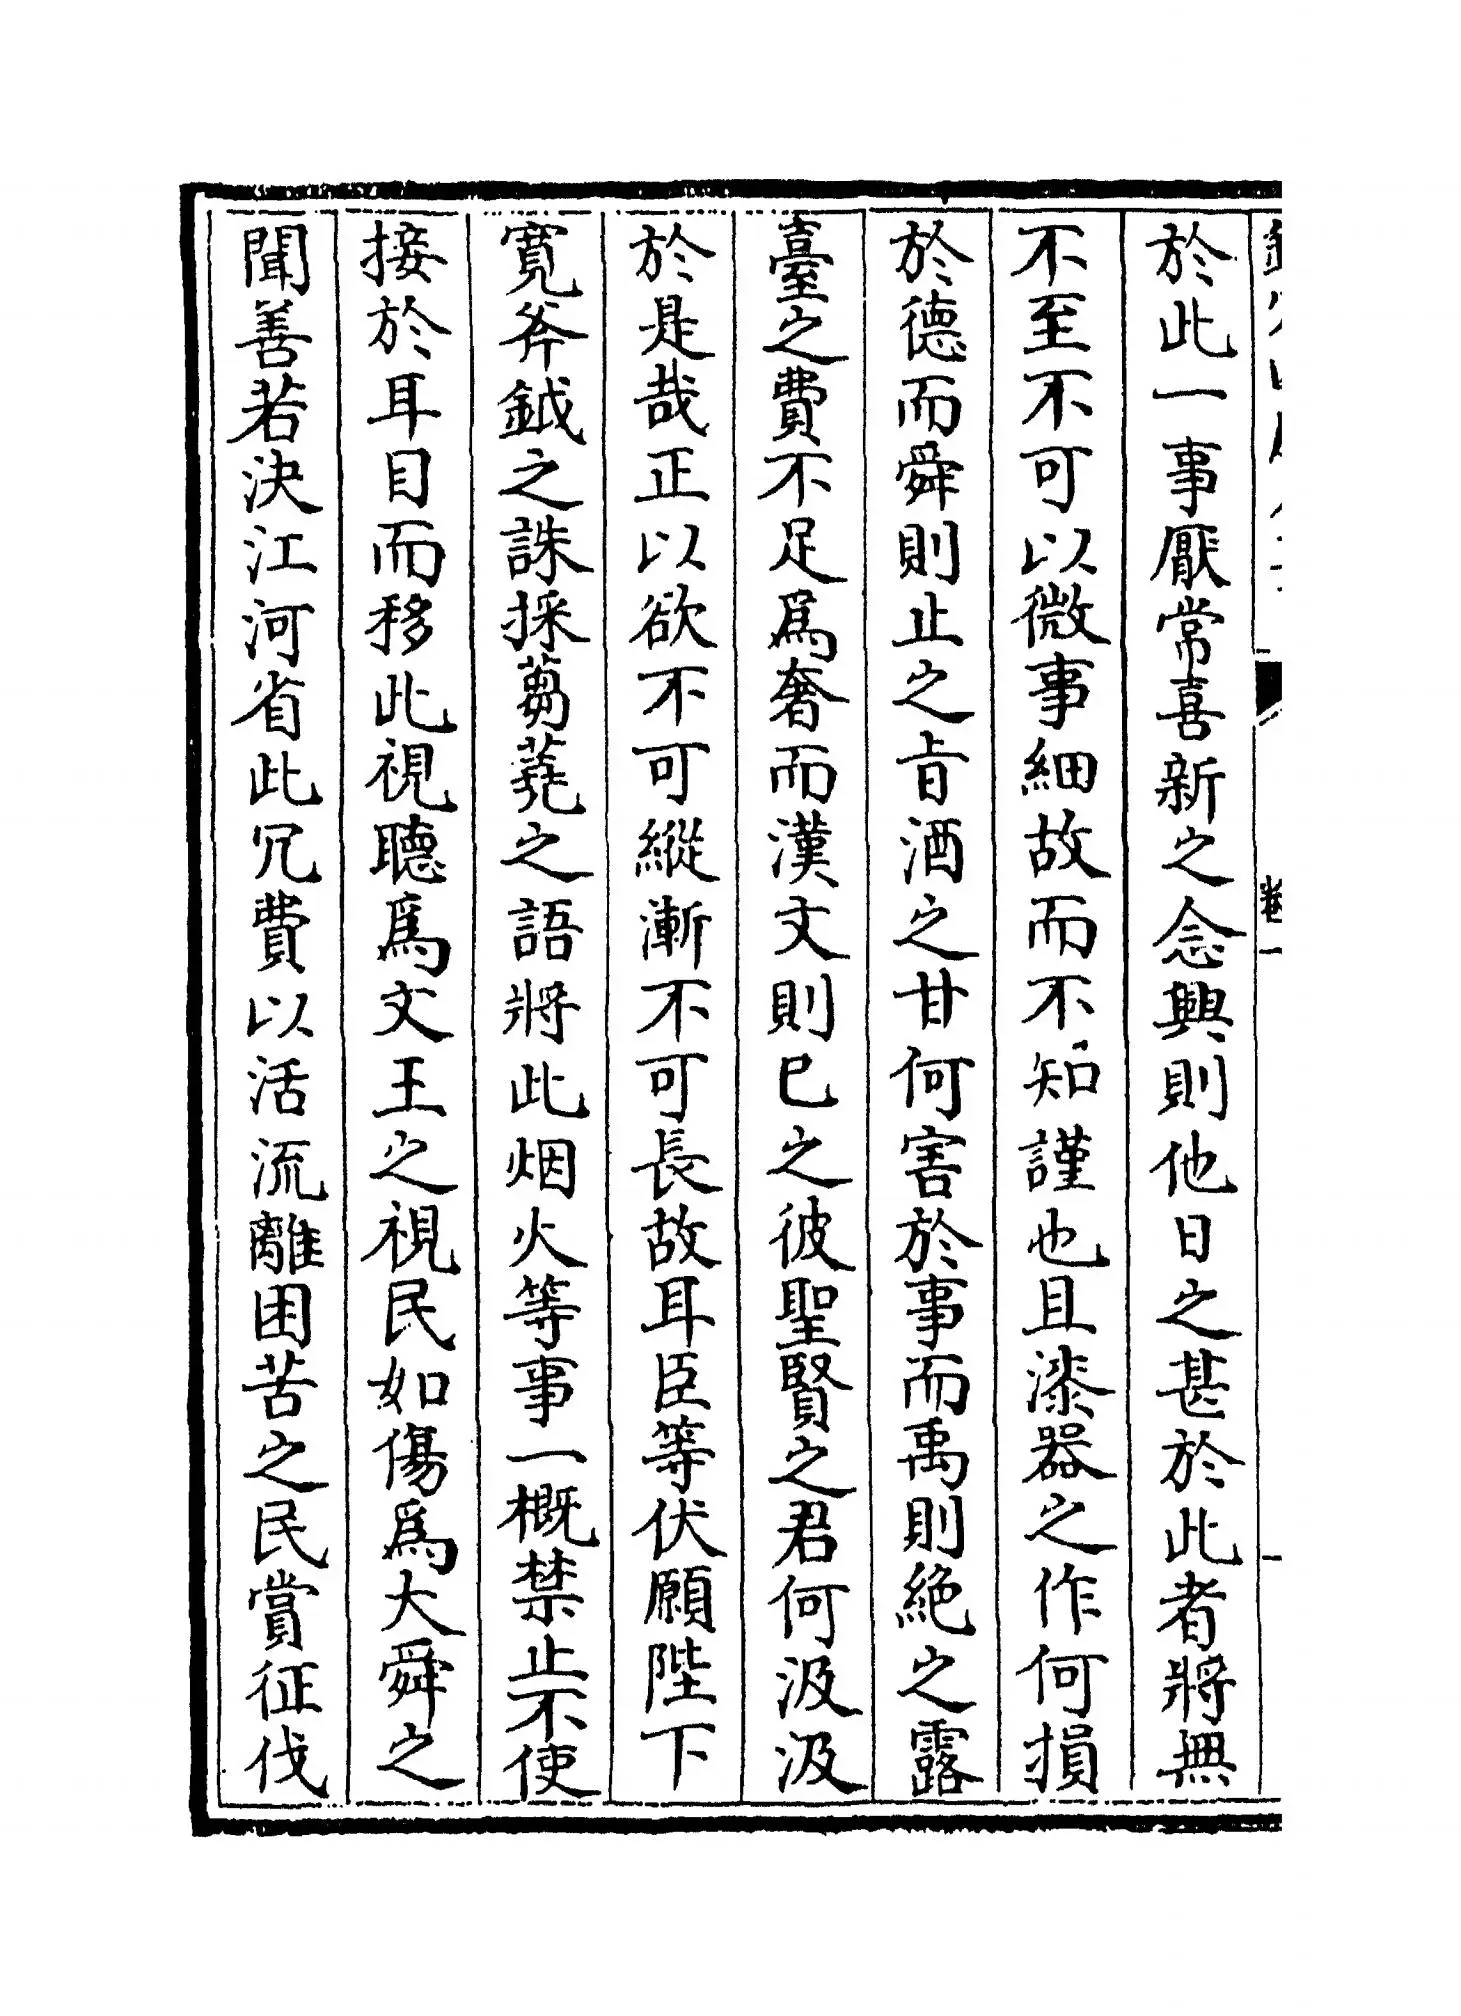 於此一事厭常喜新之念興則他日之甚於此者將無
不至不可以微事細故而不知謹也且漆器之作何損
於德而舜則止之旨酒之甘何害於事而禹則絶之露
臺之費不足爲奢而漢文則已之彼聖賢之君何汲汲
於是哉正以欲不可縱漸不可長故耳臣等伏願陛下
寛斧鉞之誅採蒭蕘之語將此烟火等事一概禁止不使
接於耳目而移此視聽爲文王之視民如傷爲大舜之
聞善若決江河省此冗費以活流離困苦之民賞征伐
卷一